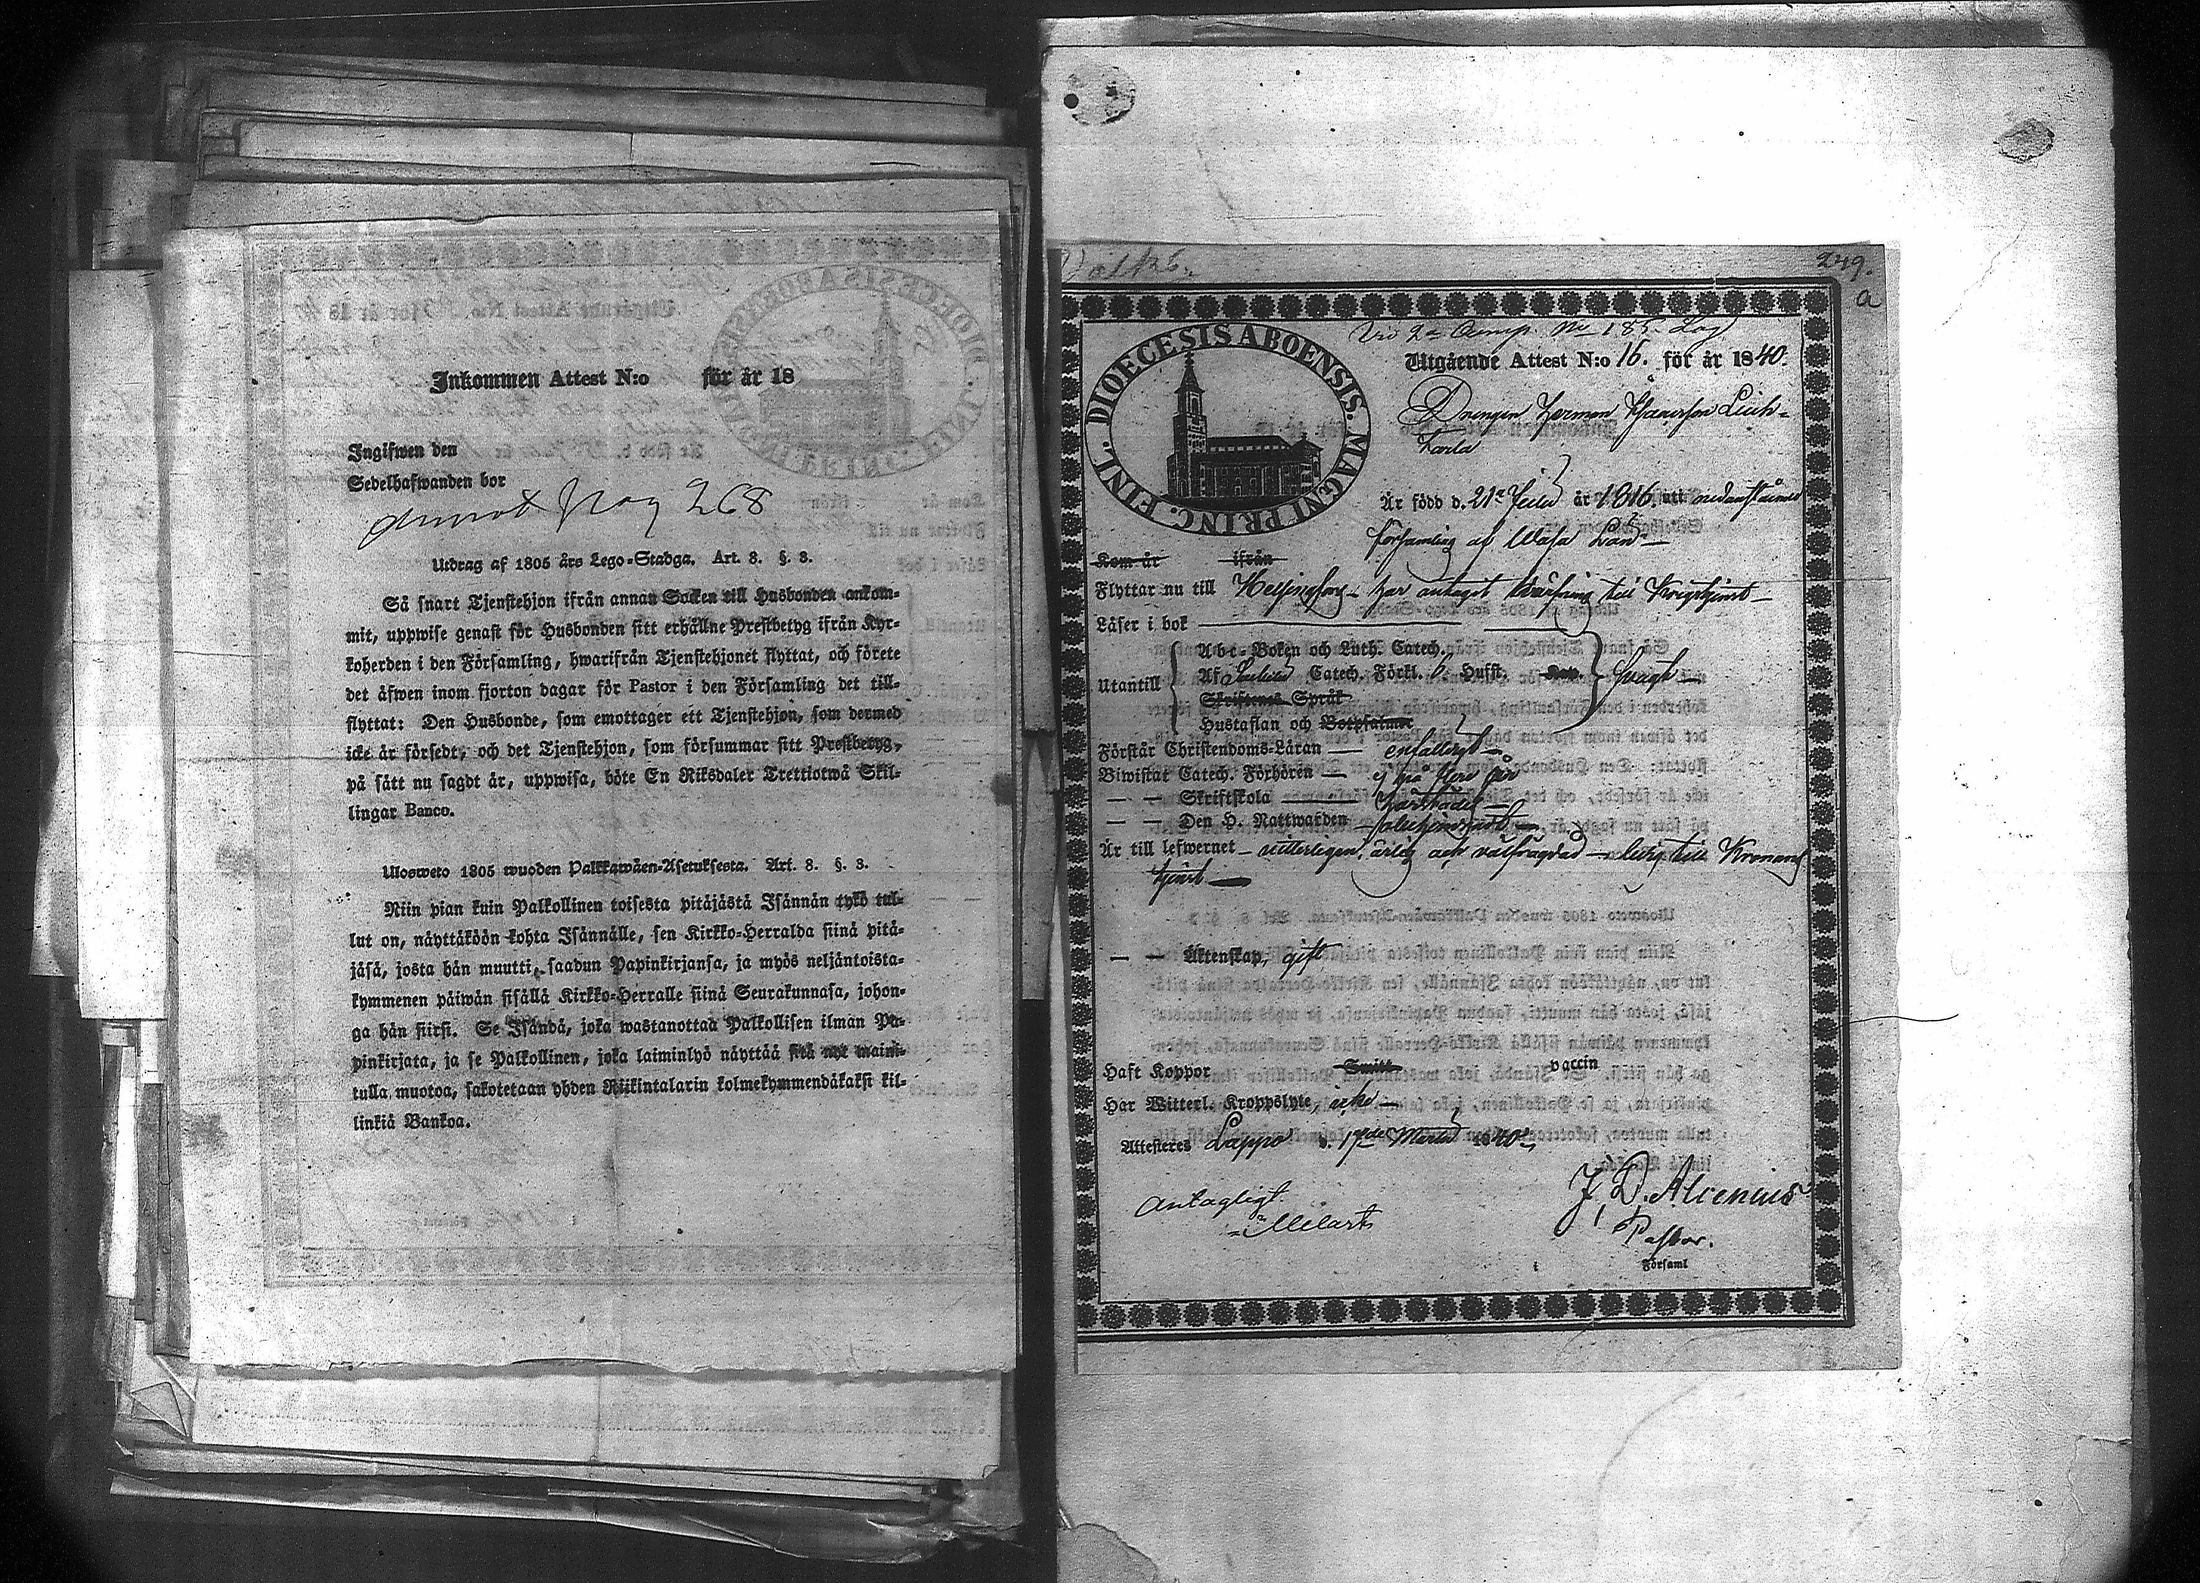 Inkommen Attest N:o för år 18
Ingifwen den
Sedelhafwanden bor
annot pag 268
Utdrag af 1805 års Lego-Stadga. Art. 8. §. 3.
Så snart Tjenstehjon ifrån annan Socken till Husbonden ankom-
mit, uppwise genast för Husbonden sitt erhållne Prestbetyg ifrån Kyr-
koherden i den Församling, hwarifrån Tjenstehjonet flyttat, och förete
det äfwen inom fjorton dagar för Pastor i den Församling det till-
flyttat: Den Husbonde, som emottager ett Tjenstehjon, som dermed
icke är försedt, och det Tjenstehjon, som försummar sitt Prestbetyg,
på sätt nu sagdt är, uppwisa, böte En Riksdaler Trettiotwå Skil-
lingar Banco.
Ulosweto 1805 wuoden Palkkawäen-Asetuksesta. Art. 8. §. 3.
Niin pian kuin Palkollinen toisesta pitäjästä Isännän tykö tul-
lut on, näyttäköön kohta Isännälle, sen Kirkko-Herralda siinä pitä-
jäsä, josta hän muutti, saadun Papinkirjansa, ja myös neljäntoista-
kymmenen päiwän sisällä Kirkko-Herralle siinä Seurakunnasa, johon-
ga hän siirsi. Se Isändä, joka wastanottaa Palkollisen ilman Pa-
pinkirjata, ja se Palkollinen, joka laiminlyö näyttää sitä nyt maini-
tulla muotoa, sakotetaan yhden Riikintalarin kolmekymmendäkaksi kil-
linkiä Bankoa.
249.
a
Wid 2a Comp. No 185. Lag
DIOECESIS ABOENSIS. MAGNI PRINC. FINL.
Utgående Attest N:o 16. för år 1840.
Drengen Herman Isacsson Luh-
Är född d. 21 år 1816. uti nedanstående
församling af Wasa Län
Kom år ifrån
Flyttar nu till Helsingfors har antaget Wärfning till Krigstjenst
Läser i bok
Utantill
Abc-Boken och Luth. Catech.
Af Catech. Förkl. 6. Hufst.
Skriftenes Språk
Hustaflan och Botpsalmer
svagt
Förstår Christendoms-Läran
Biwistat Catech. Förhören ej på flere år
— — Skriftskola
— — Den H. Nattwarden
Är till lefwernet witterligen, ärlig och välfrägdad ledig till Kronans
tjenst
— — Äktenskap, gift
Haft Koppor Smitt vaccin
Har Witterl. Kroppslyte, icke
Attesteras Lappo d. 17de Martii 1840
J. D. Alcenius
Pastor.
Församl
Antaglig